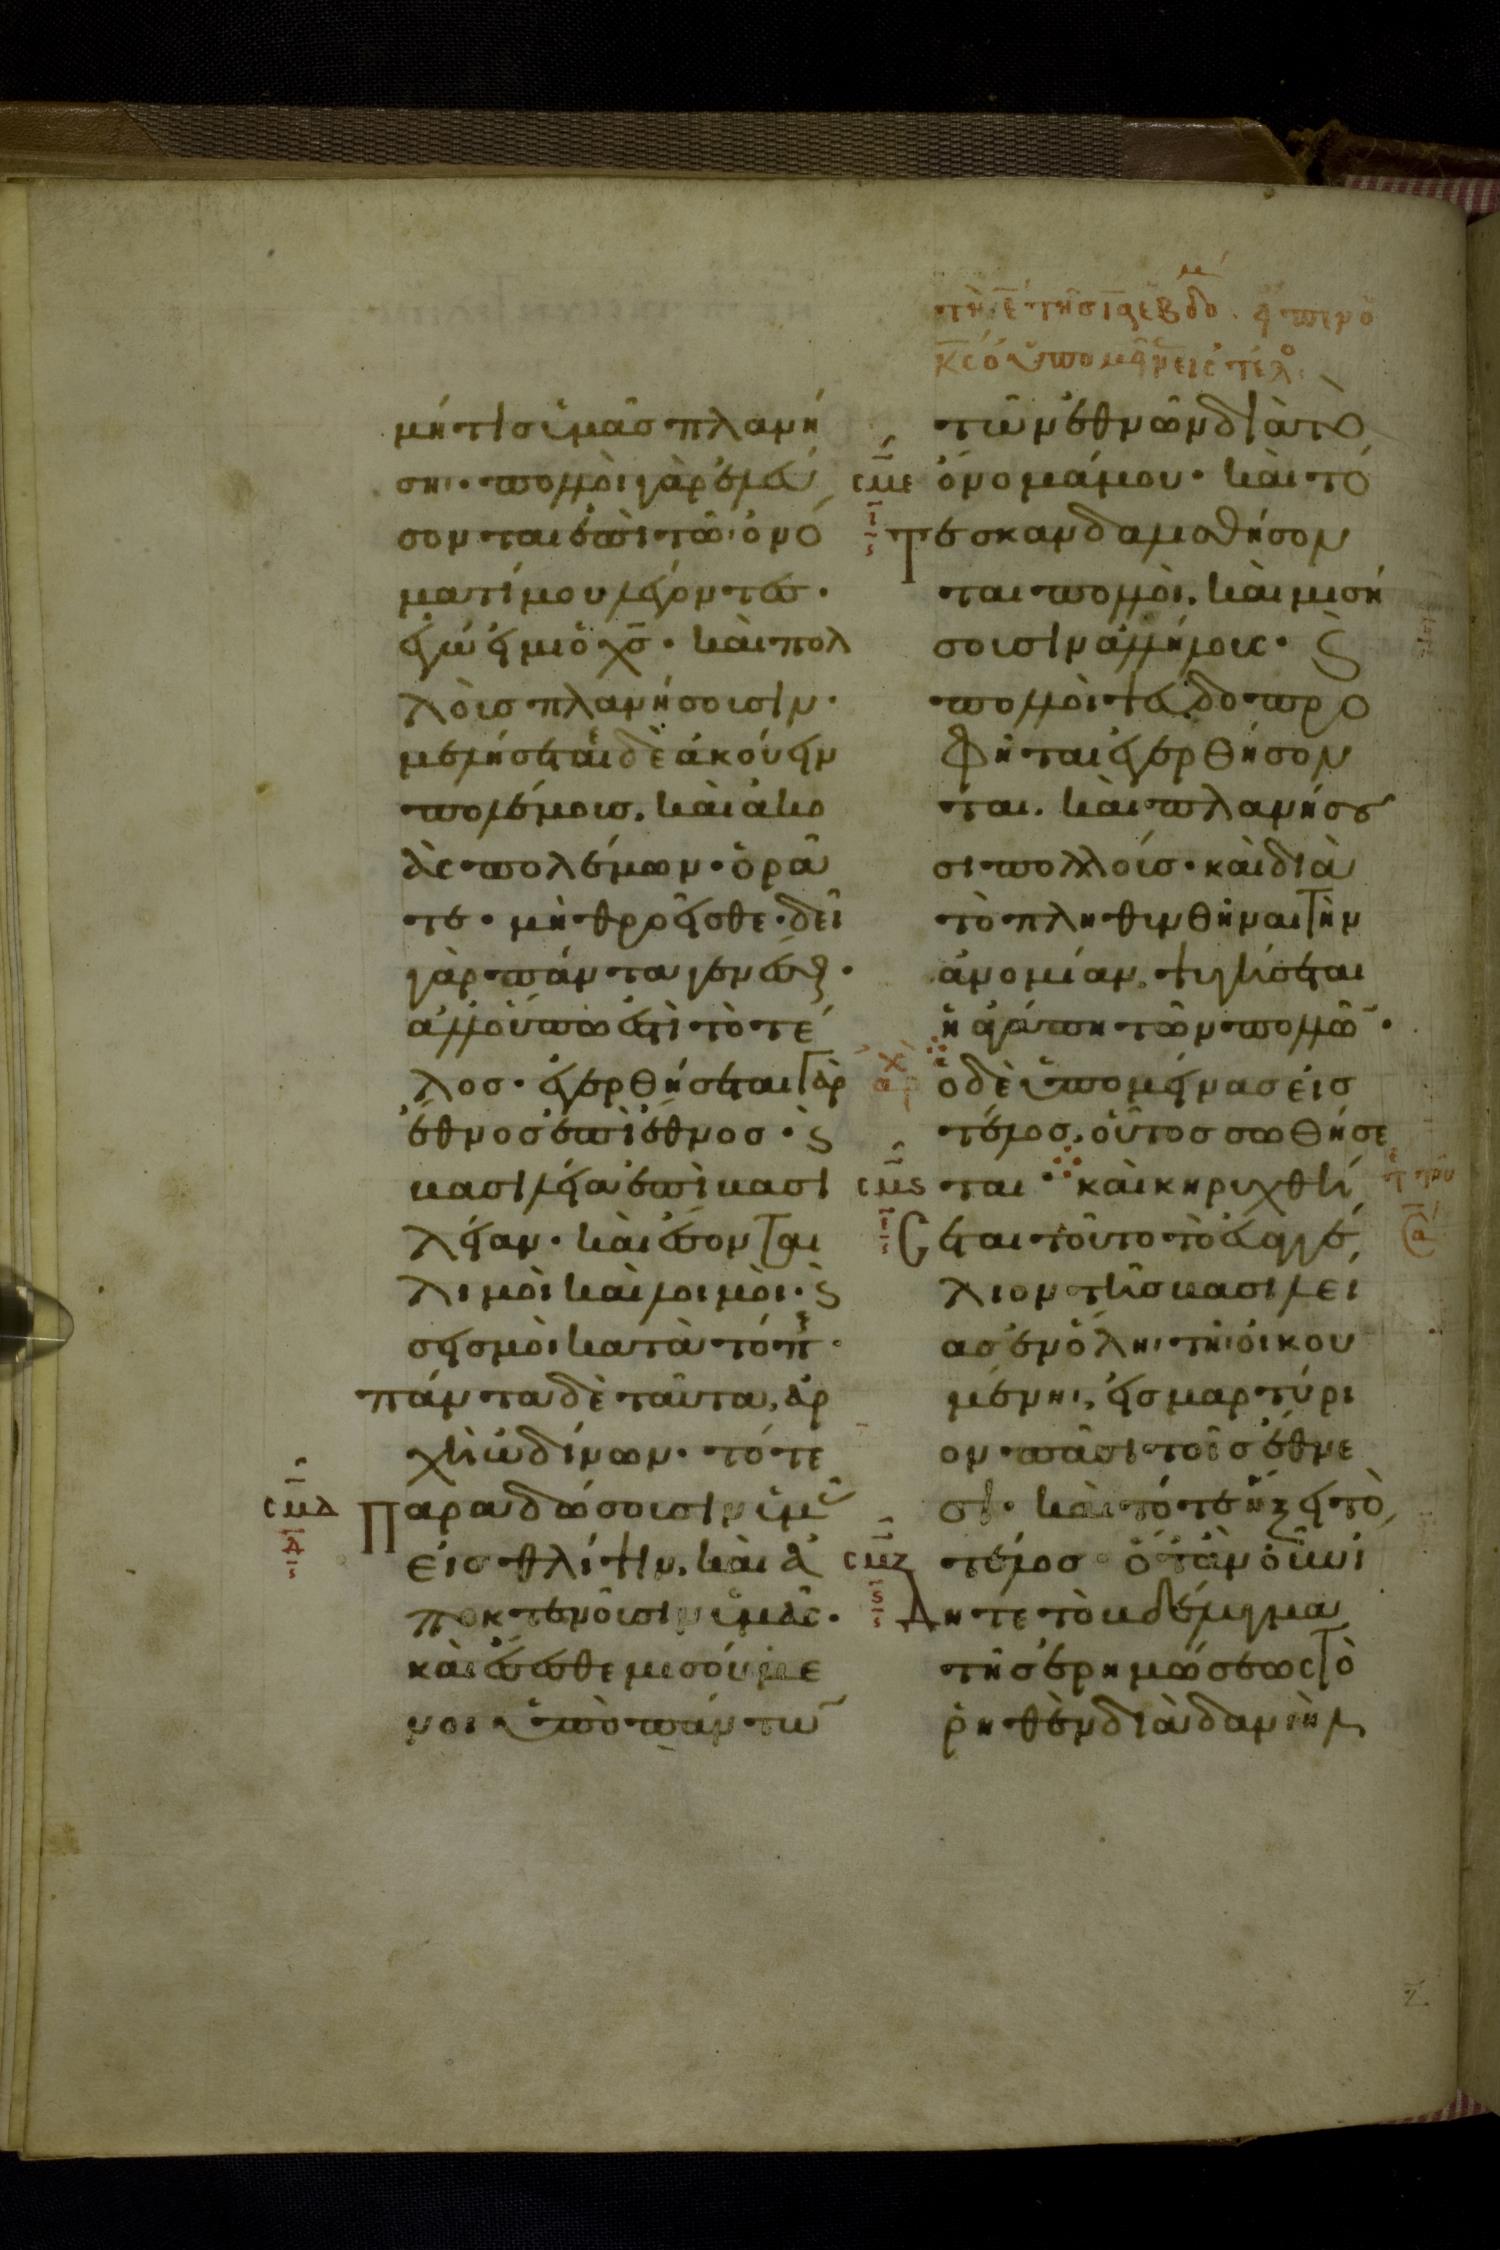 μή τις ὑμᾶς πλανή
σηι· πολλοὶ γὰρ ἐλεύ
σονται ἐπὶ τῶι ὀνό
ματί μου λέγοντες·
ἐγώ εἰμι ὁ χς̄· καὶ πολ
λοὺς πλανήσουσιν·
μελήσεται δὲ ἀκούειν
πολέμους, καὶ ἀκο
ὰς πολέμων· ὁρᾶ
τε· μὴ θροεῖσθε· δεῖ
γὰρ πάντα γενέσθαι·
ἀλλ' οὔπω ἐστὶ τὸ τέ
λος· ἐγερθήσεται γὰρ
ἔθνος ἐπὶ ἔθνος· ϛ̀
βασιλεία ἐπὶ βασι
λείαν· καὶ ἔσονται
λιμοὶ καὶ λοιμοὶ· ϛ̀
σεισμοὶ κατὰ τόπους·
πάντα δὲ ταῦτα, ἀρ
χὴ ὠδίνων· τότε
σμδ παραδώσουσιν ὑμᾶς
εἰς θλίψιν, καὶ ἀ
ποκτενοῦσιν ὑμᾶς·
καὶ ἔσεσθε μισούμε
νοι ὑπὸ πάντων
κς ὁ ὑπομείνας εἰς τέλος
τῶν ἐθνῶν διὰ τὸ
σμε ὄνομά μου· καὶ τό
τε σκανδαλισθήσον
ται πολλοὶ, καὶ μισή
σουσιν ἀλλήλους· ϛ̀
πολλοὶ ψευδοπρο
φῆται ἐγερθήσον
ται, καὶ πλανήσου
σι πολλούς· καὶ διὰ
τὸ πληθυνθῆναι τὴν
ἀνομίαν, ψυγήσεται
ἡ ἀγάπη τῶν πολλῶν·
ὁ δὲ ὑπομείνας εἰς
τέλος, οὗτος σωθήσε
σμϛ ται· καὶ κηρυχθή
σεται τοῦτο τὸ εὐαγγέ
λιον τῆς βασιλεί
ας ἐν ὅληι τῆι οἰκου
μένηι, εἰς μαρτύρι
ον πᾶσι τοῖς ἔθνε
σι· καὶ τότε ἥξει τὸ
σμζ τέλος· ὅταν οὖν ἴ
δητε τὸ βδέλυγμα
τῆς ἐρημώσεως τὸ
ῥηθὲν διὰ δανιὴλ